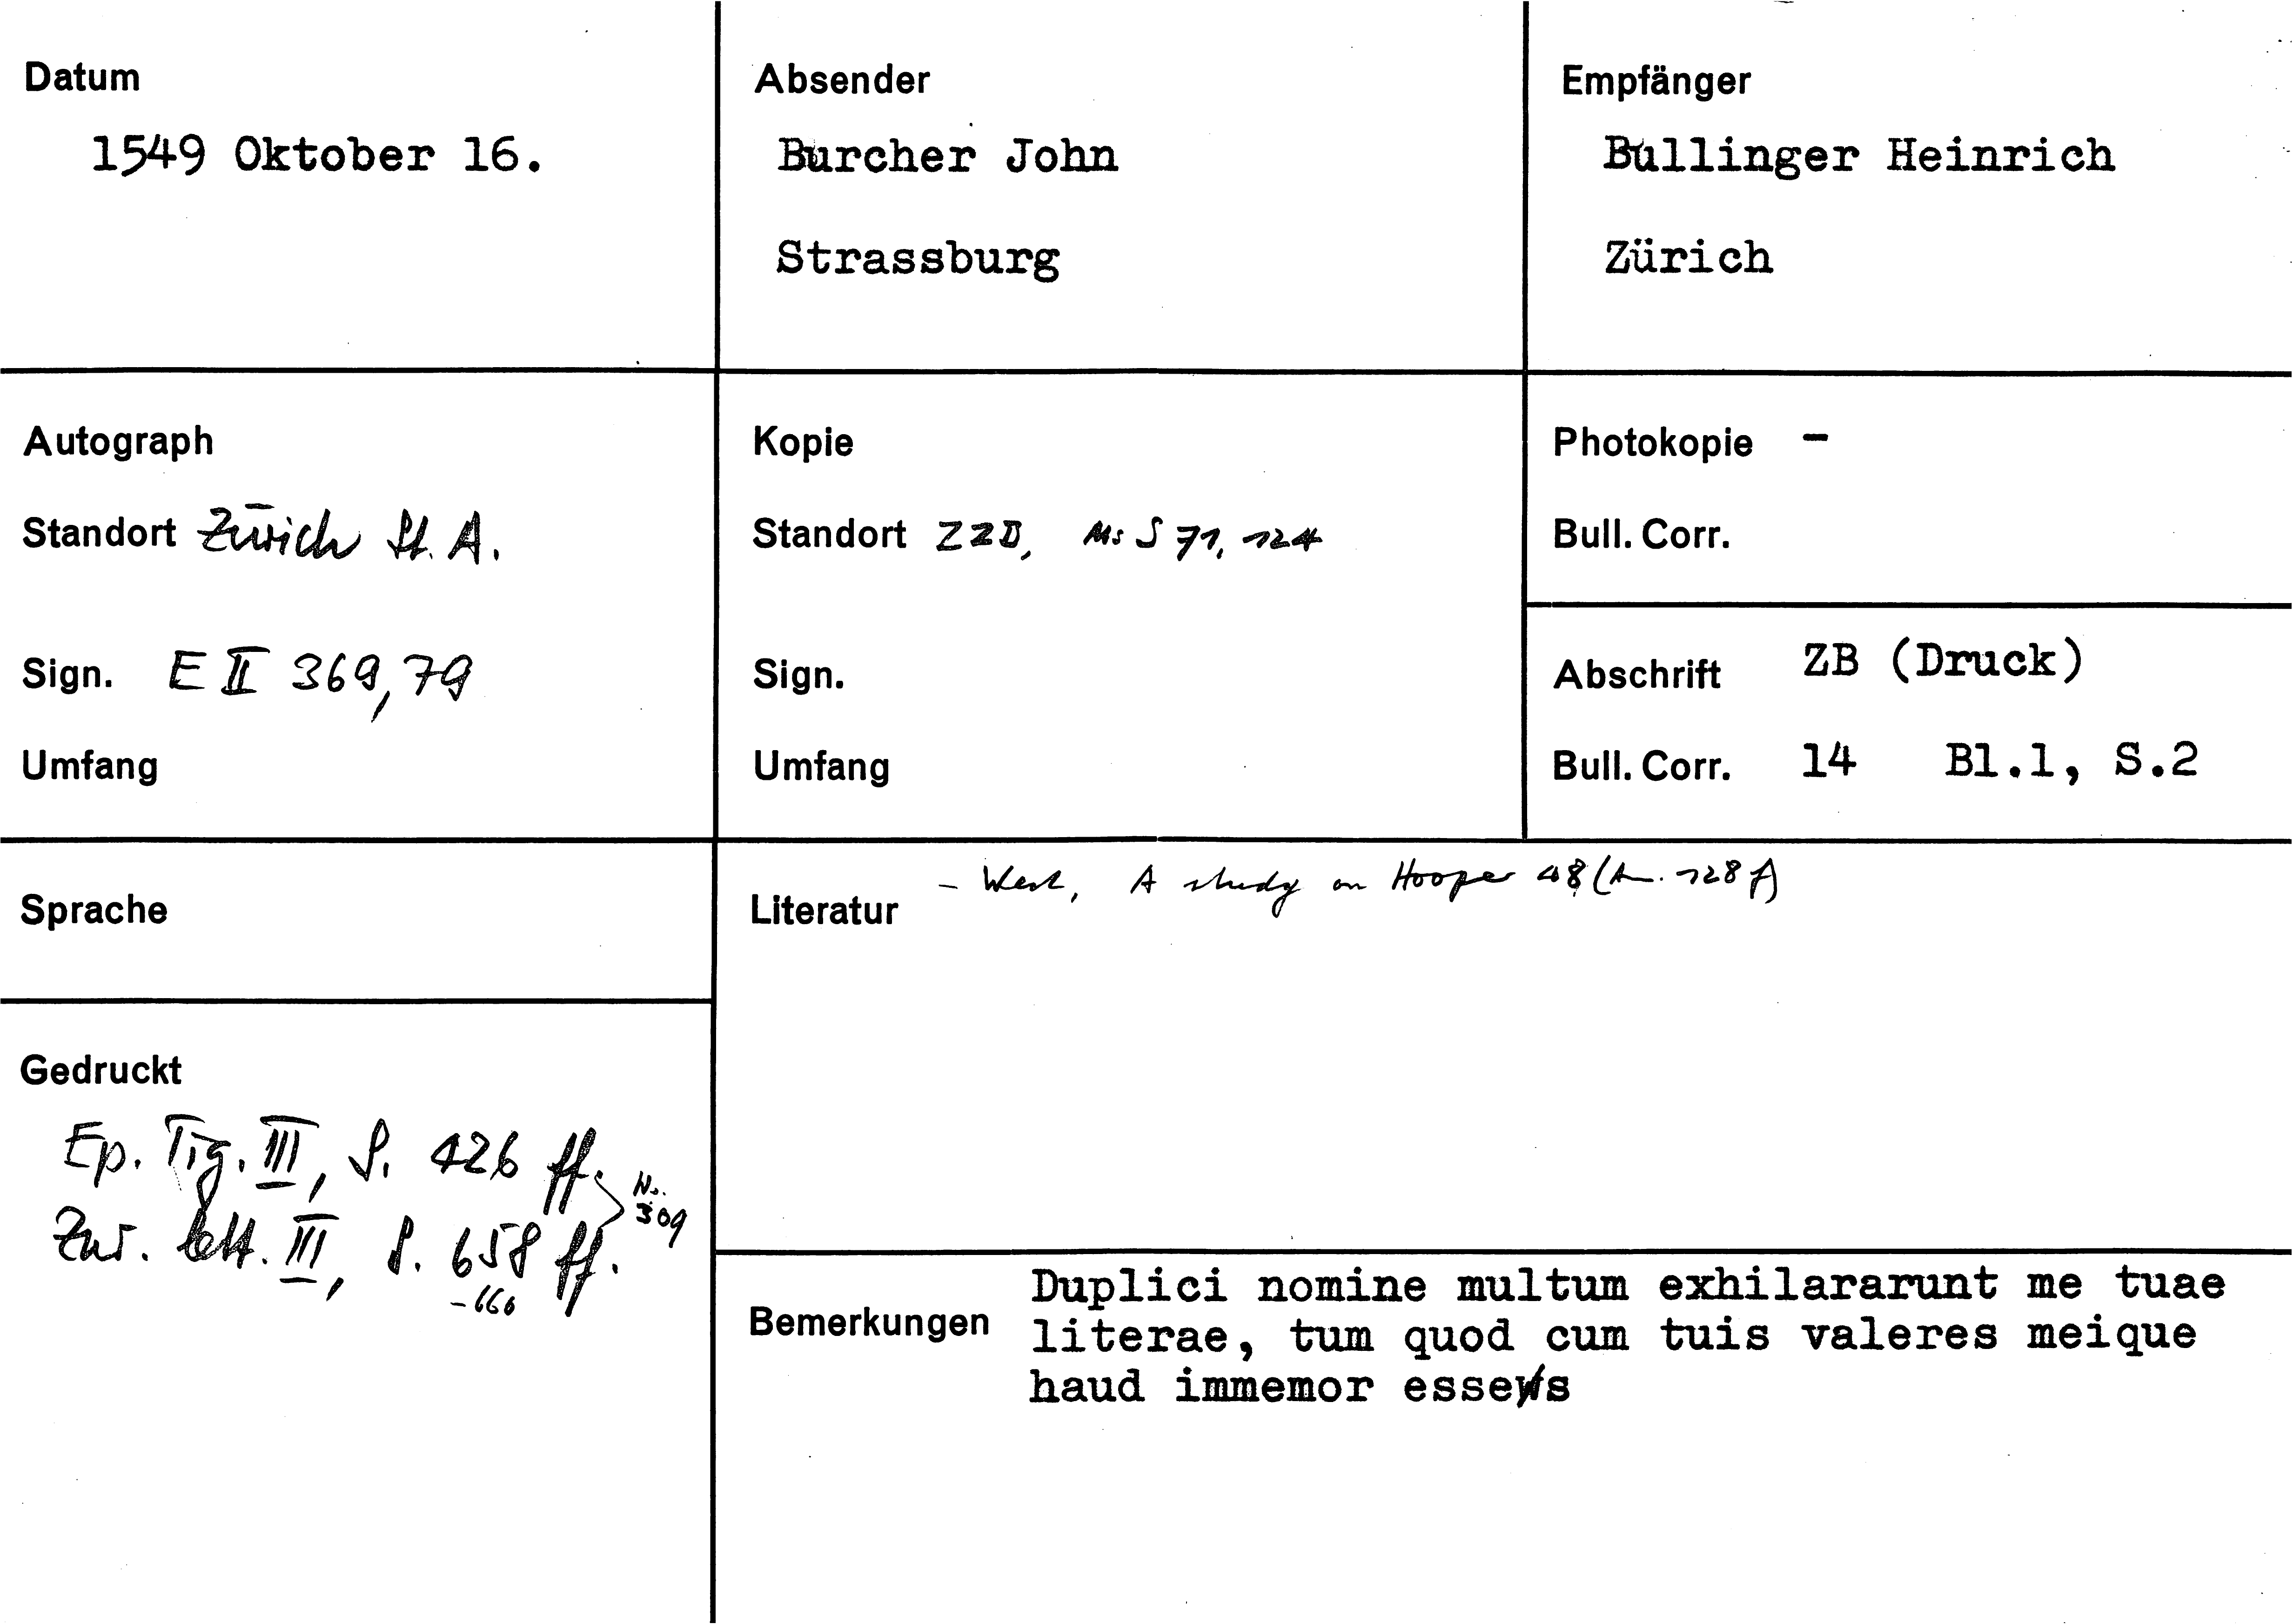 Datum
1549 Oktober 16.
Absender
Burcher John
Strassburg
Empfänger
Bullinger Heinrich
Zürich
Autograph
Standort Zürich St. A.
Sign. E II 369,79
Umfang
Kopie
Standort ZZB, Ms S 71, 124
Sign.
Umfang
Photokopie -
Bull. Corr.
Abschrift ZB (Druck)
Bull. Corr. 14 Bl.1, S.2
Sprache
Literatur - West, A study on Hooper 48 (A. 128 f)
Gedruckt
Ep. Tig. III, S. 426 ff.
Zur. lett. III, S. 658 ff.
-660
No.
309
Bemerkungen
Duplici nomine multum exhilararunt me tuae
literae, tum quod cum tuis valeres meique
haud immemor esses